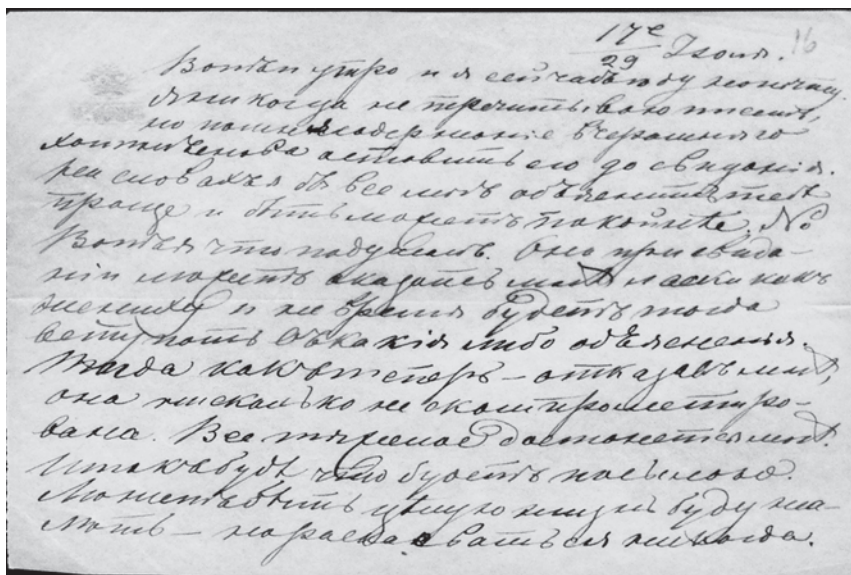 17е/29 Июля. 16
Вотъ и утро и я сейчасъ иду на почту
я никогда не перечитываю писемъ,
но помня содержаніе вчерашняго
хотѣлъ снова оставить его до свиданія.
на словахъ я бы все могъ объяснить тебѣ
проще и быть можетъ покойнѣе. Но
Вотъ я что подумалъ. Она при свида-
ніи можетъ оказать мнѣ ласки какъ
жениху и не время будетъ тогда
вступать въ какія либо объясненія.
Тогда какъ теперь — отказавъ мнѣ,
она нисколько не скомпрометиро-
вана. Все тяжелое достанется мнѣ.
Итакъ будь что будетъ посылаю.
Можетъ быть цѣлую жизнь буду жа-
лѣть — но раскаиваться никогда.